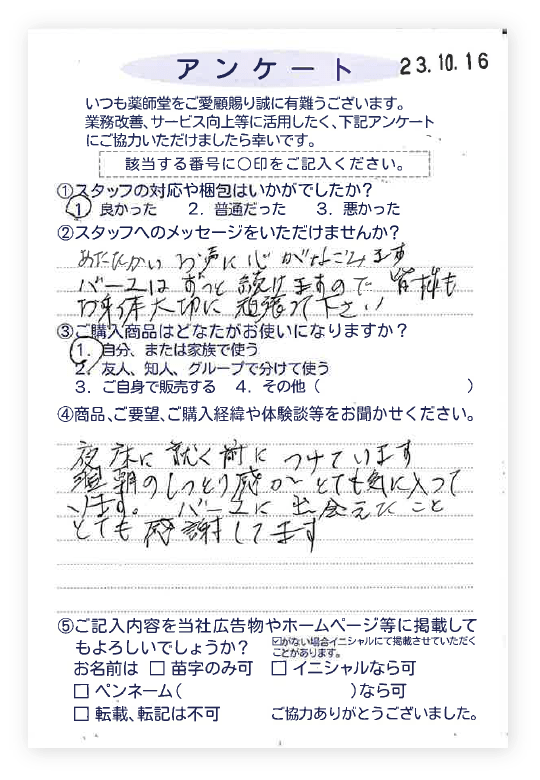 アンケート
23.10.16
いつも薬師堂をご愛顧賜り誠に有難うございます。
業務改善、サービス向上等に活用したく、下記アンケート
にご協力いただけましたら幸いです。
該当する番号に〇印をご記入ください。
①スタッフの対応や梱包はいかがでしたか？
1 良かった 2. 普通だった 3. 悪かった
②スタッフへのメッセージをいただけませんか？
あたたかい お声に 心がなごみます
バーユは ずっと 続けますので 皆様も
お身体大切に 頑張って下さい
③ご購入商品はどなたがお使いになりますか？
1. 自分、または家族で使う
2. 友人、知人、グループで分けて使う
3. ご自身で販売する 4. その他（ ）
④商品、ご要望、ご購入経緯や体験談等をお聞かせください。
夜 床に 就く前に つけています
翌朝のしっとり感が とても気に入って
います。 バーユに 出会えたこと
とても 感謝してます
⑤ご記入内容を当社広告物やホームページ等に掲載して
もよろしいでしょうか？
☑がない場合イニシャルにて掲載させていただく
ことがあります。
お名前は □ 苗字のみ可 □ イニシャルなら可
□ ペンネーム（ ）なら可
□ 転載、転記は不可 ご協力ありがとうございました。